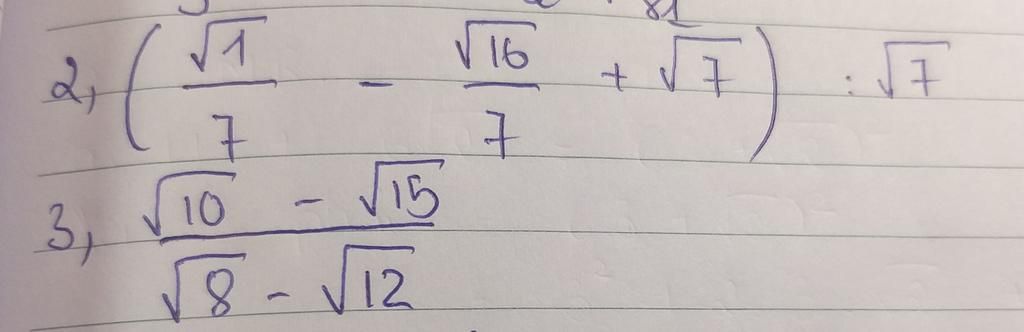 81
2, ( √1 / 7 - √16 / 7 + √7 ) : √7
3, √10 - √15 / √8 - √12